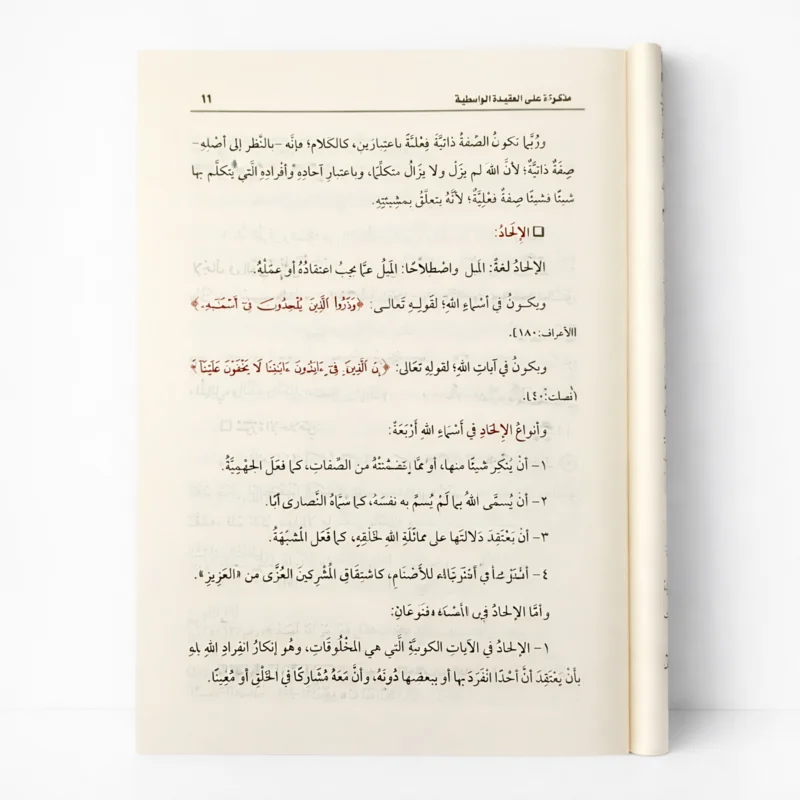 مذكرة على العقيدة الواسطية ١١
وربَّما تكونُ الصِّفةُ ذاتيَّةً فِعْليَّةً باعتِبارَينِ، كالكلام؛ فإنَّه -بالنَّظر إلى أصْلِهِ-
صِفَةٌ ذاتيَّةٌ؛ لأنَّ اللهَ لم يزَلْ ولا يزَالُ متكلِّمًا، وباعتبارِ آحادِهِ وأفْرادِهِ الَّتي يتكلَّم بها
شيئًا فشيئًا صِفةٌ فعْليَّةٌ؛ لأنَّهُ يتعلَّقُ بمشِيئتِهِ.
❑ الإلحَادُ:
الإلحادُ لغةً: المَيل واصْطلاحًا: المَيلُ عمَّا يجبُ اعتقادُهُ أو عمَلُهُ.
ويكونُ في أسْماءِ اللهِ؛ لقَولِهِ تَعالى: ﴿وَذَرُوا الَّذِينَ يُلْحِدُونَ فِي أَسْمَـٰٓئِهِۦ﴾
الأعراف: ١٨٠].
ويكونُ في آياتِ اللهِ؛ لقولِهِ تعَالى: الَّذِينَ فِي لَا يَخْفَوْنَ عَلَيْنَآ﴾
فصلت: ٤٠].
وأنواعُ الإلحَادِ في أسْمَاءِ اللهِ أرْبَعَةٌ:
١- أنْ يُنْكِر شيئًا منها، أو ممَّا تضمَّنَتْهُ من الصِّفاتِ، كما فعَلَ الجَهْميَّةُ.
٢- أنْ يُسمَّى اللهُ بما لَمْ يُسمِّ به نفسَهُ، كما سَمَّاهُ النَّصارى أبًا.
٣- أنْ يَعْتَقِدَ دَلالتَها على مماثَلَةِ اللهِ لخَلْقِهِ، كما فَعَل المُشبِّهَةُ.
٤- للأصْنامِ، كاشتِقاقِ المُشْركينَ العُزَّى من «العَزِيزِ».
وأمَّا الإلحادُ في فنَوعَانِ:
١- الإلحادُ في الآياتِ الكونيَّةِ الَّتي هي المخْلُوقَاتُ، وهُو إنكارُ انفِرادِ اللهِ
بأنْ يَعْتَقِدَ أنَّ أحْدًا انْفَرَدَ بها أو ببعضِها دُونَهُ، وأنَّ مَعَهُ مُشَارِكًا في الخَلْقِ أو مُعِينًا.